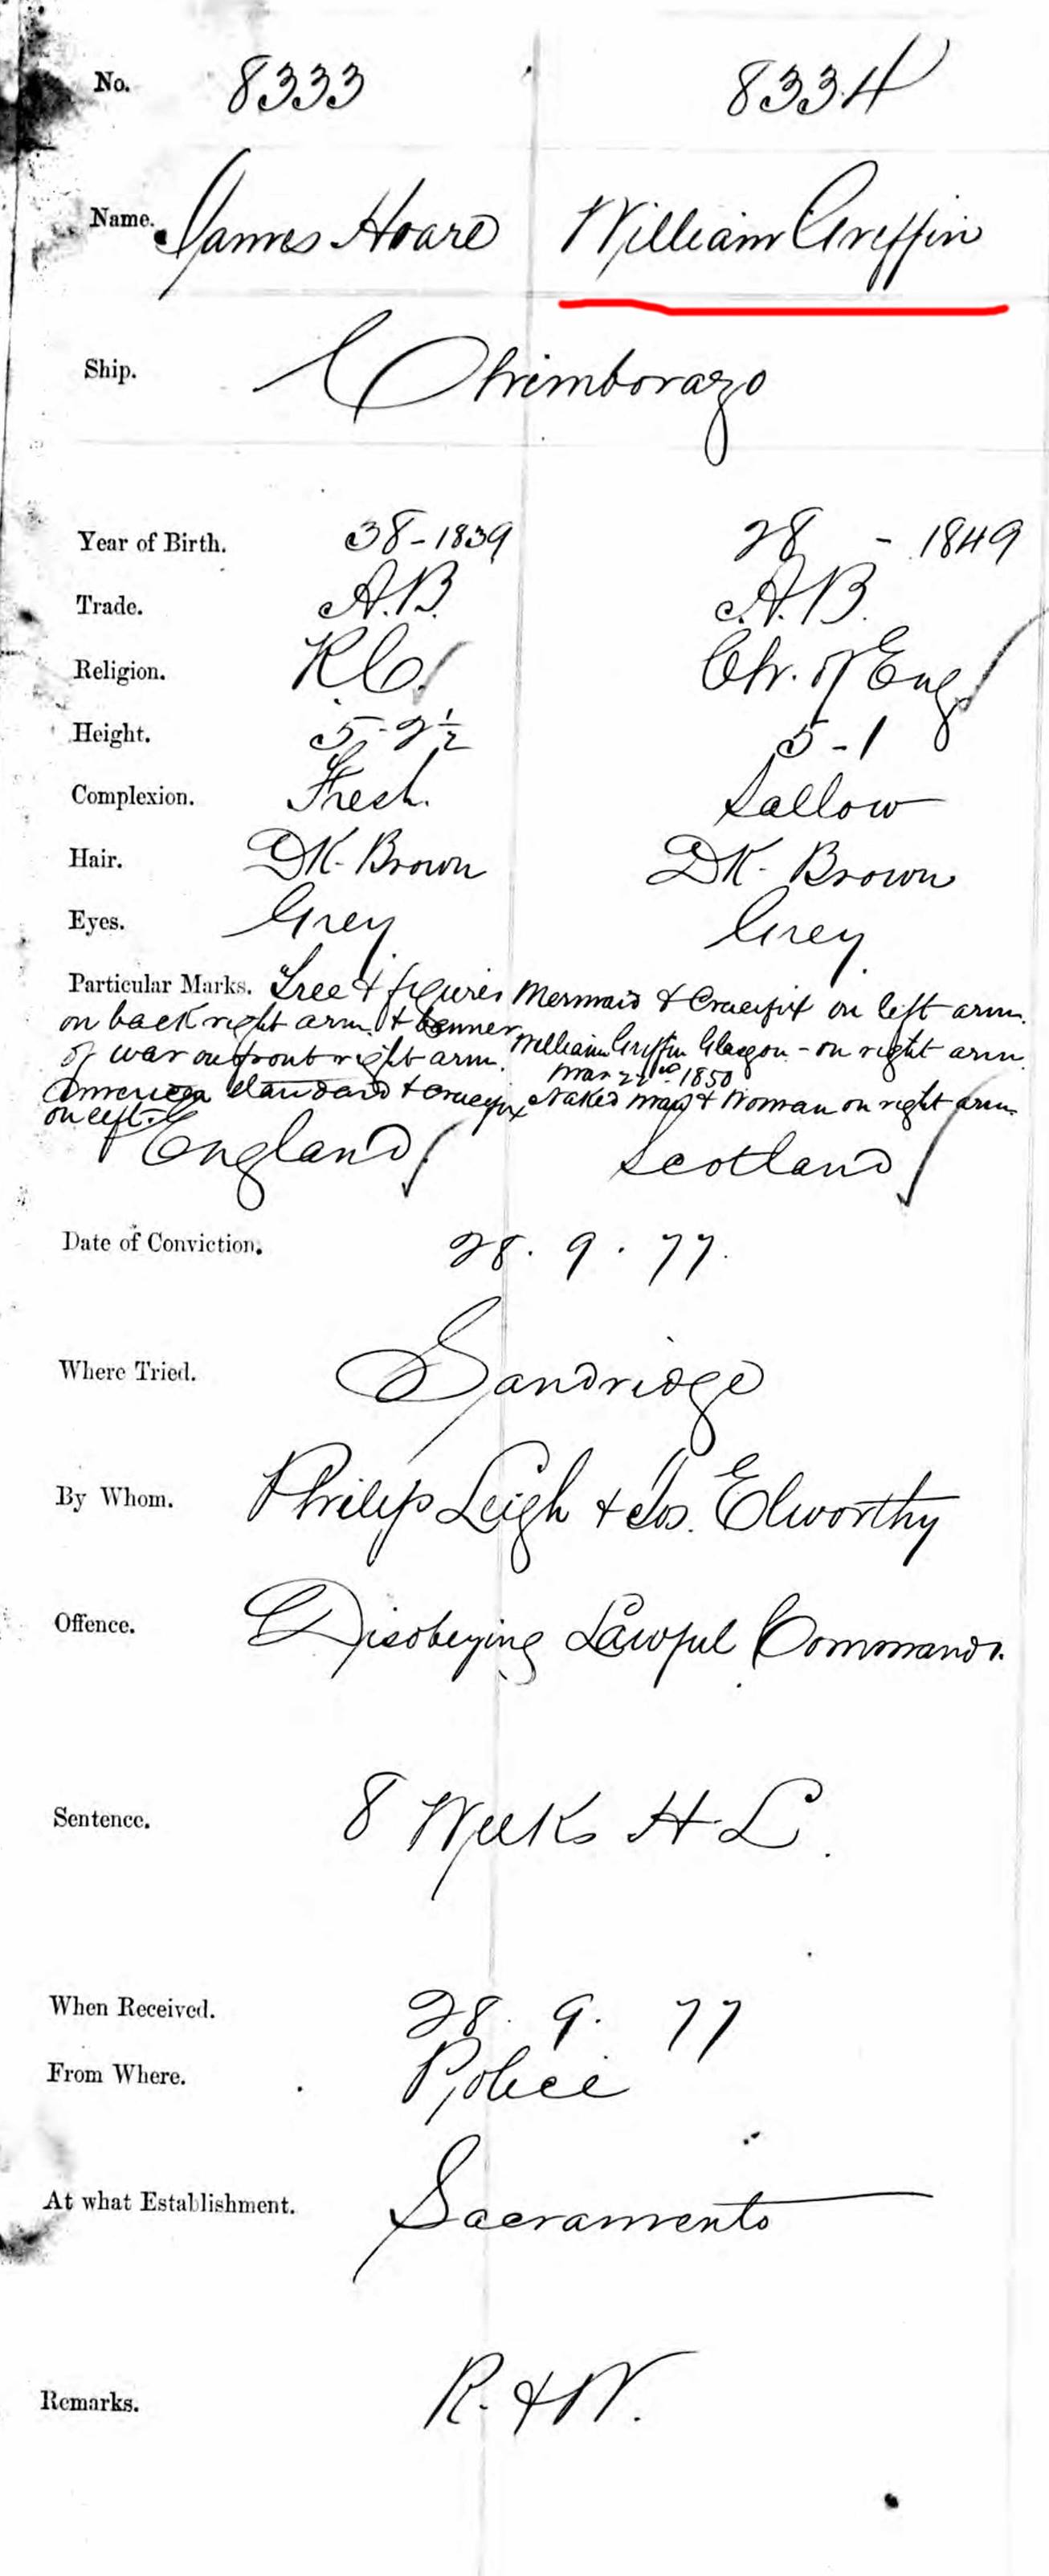 No. 8333 8334
Name. James Hoare William Griffin
Ship. Chimborazo
Year of Birth. 38-1839 28 - 1849
Trade. A.B. A.B.
Religion. R.C. Ch. of Eng
Height. 5-2½ 5-1
Complexion. Fresh. Sallow
Hair. DK. Brown DK. Brown
Eyes. Grey Grey
Particular Marks. Tree & figures Mermaid & Crucifix on left arm.
on back right arm. & banner William Griffin Glasgow - on right arm
of war on front right arm. Mar 22nd 1850
American Standard & crucifix Naked Man & Woman on right arm
on left.
England Scotland
Date of Conviction. 28. 9. 77.
Where Tried. Sandridge
By Whom. Philip Leigh & Jos. Elworthy
Offence. Disobeying Lawful Commands.
Sentence. 8 Weeks H L.
When Received. 28. 9. 77
From Where. Police
At what Establishment. Sacramento
Remarks. R. & W.